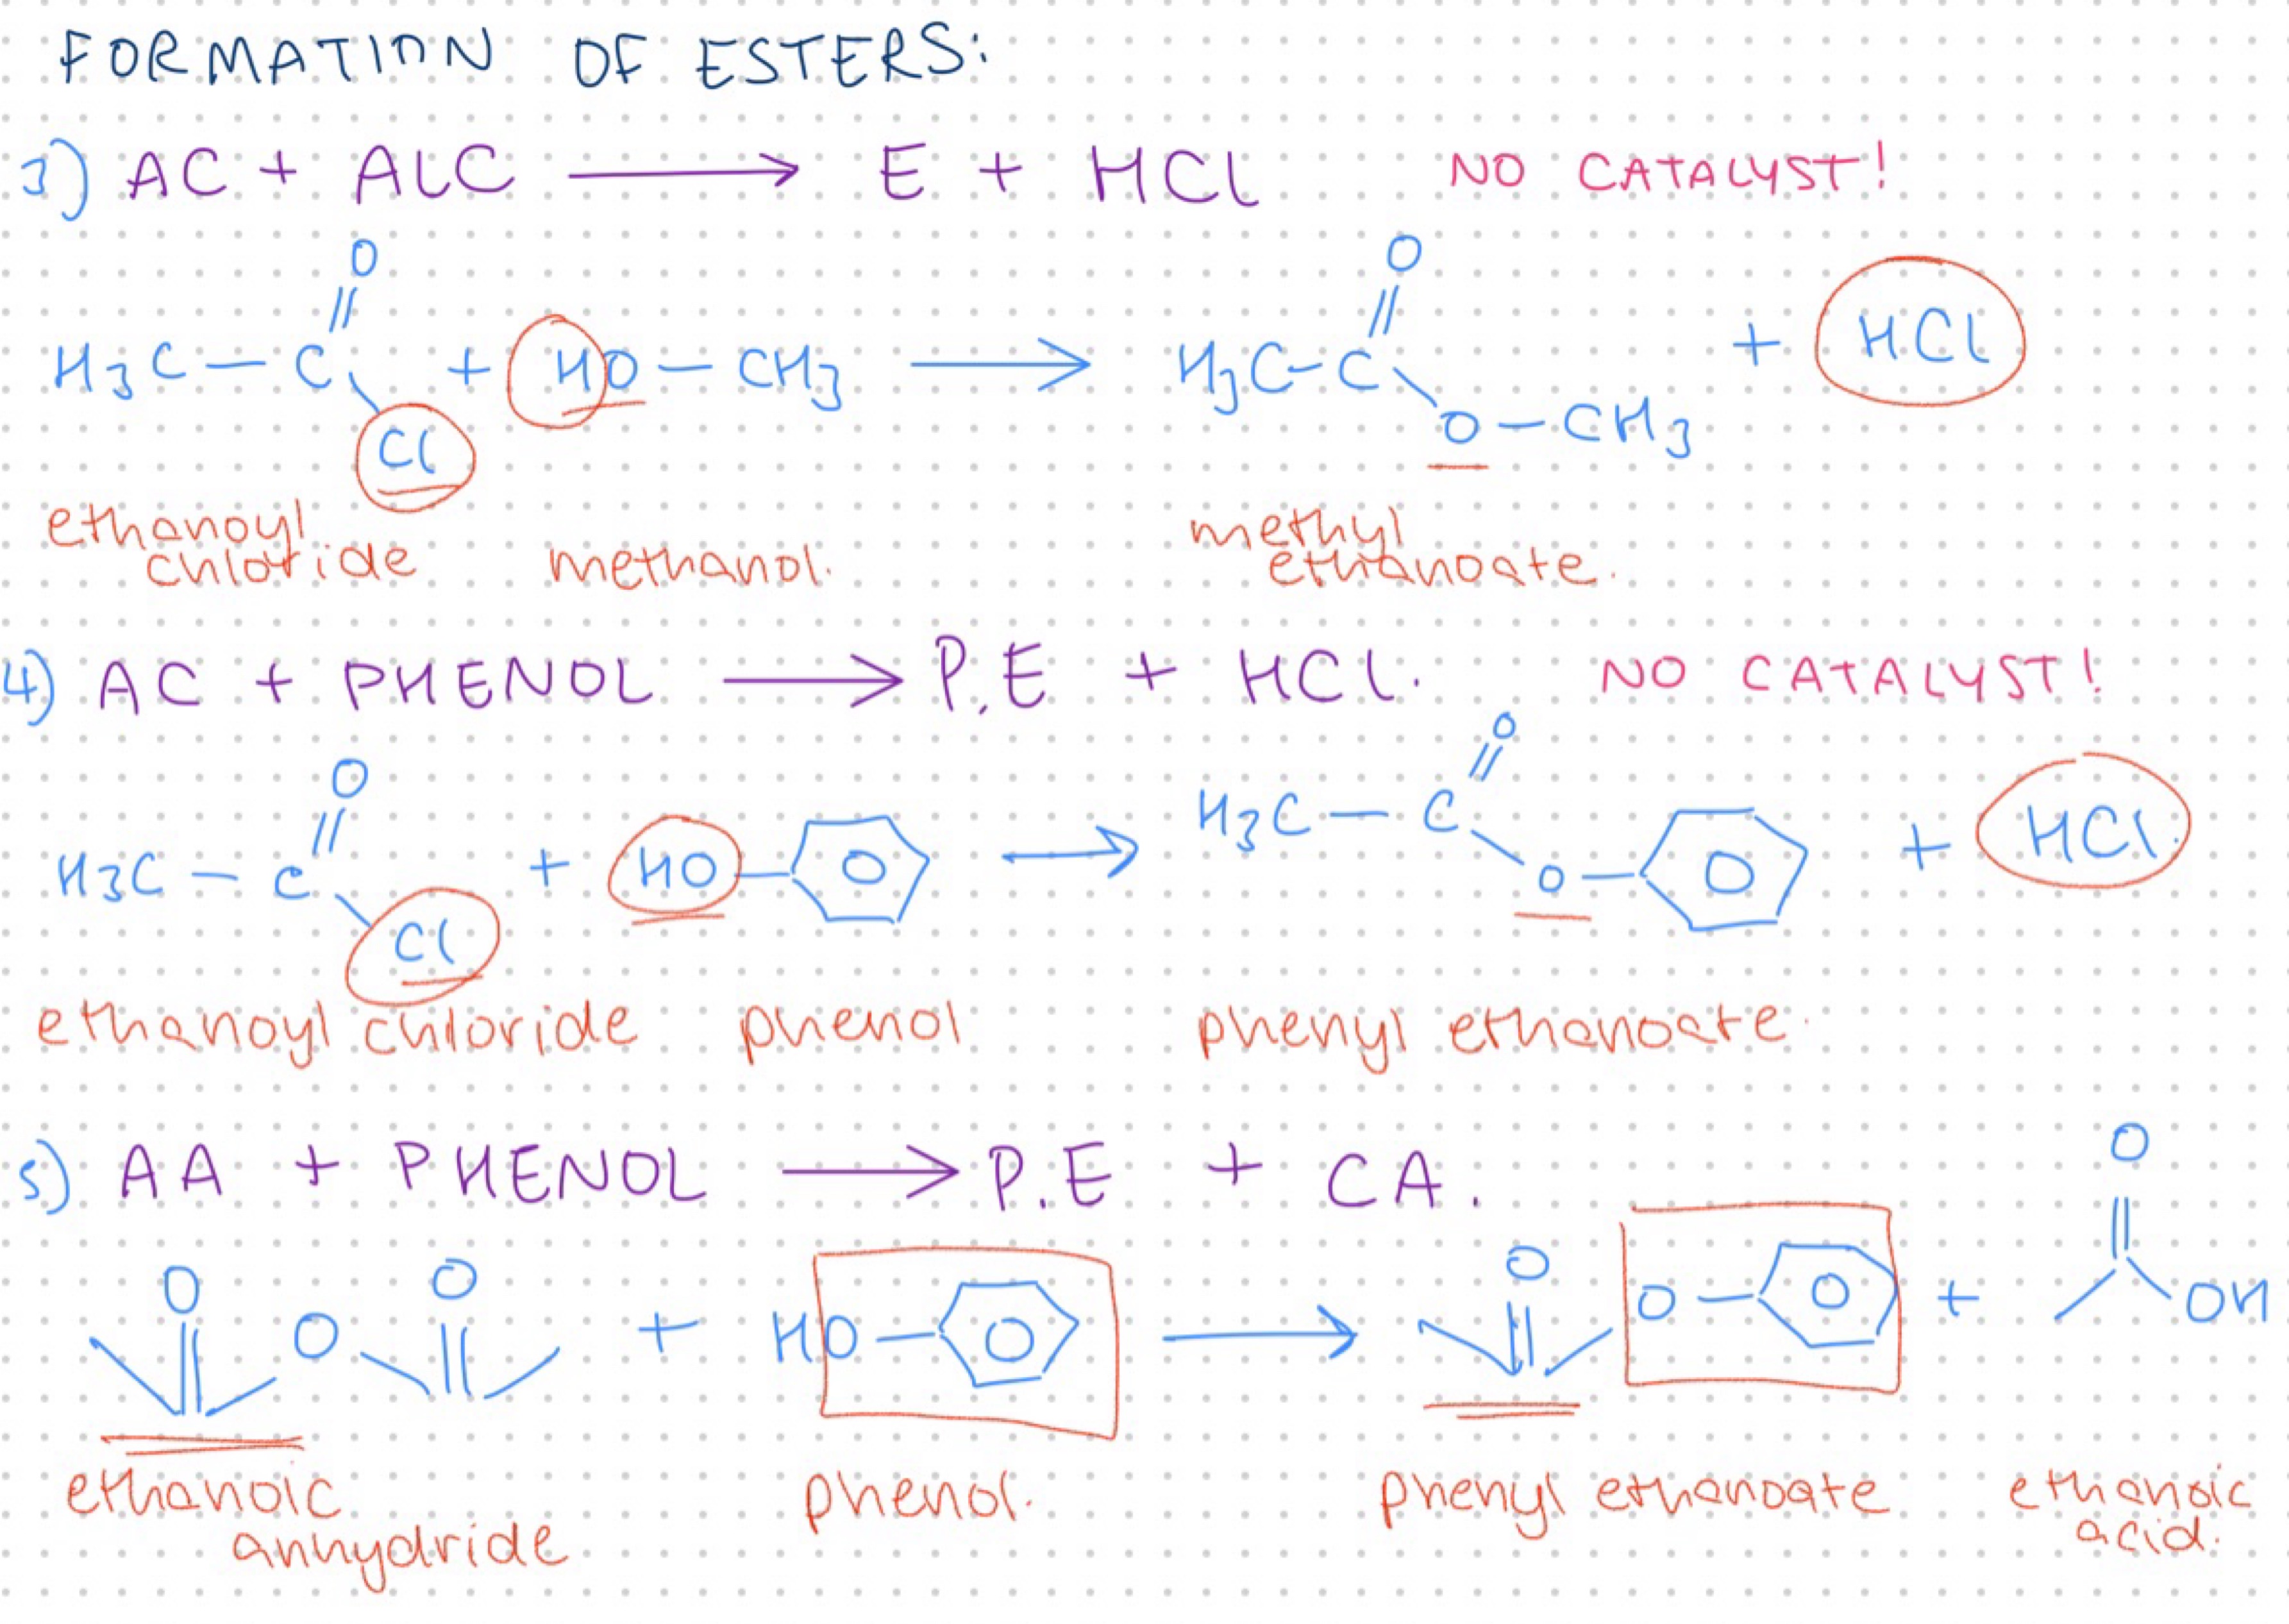 FORMATION OF ESTERS:
3) AC + ALC → E + HCl NO CATALYST!
O O
H3C – C + HO – CH3 → H3C – C + HCl
Cl O – CH3
ethanoyl chloride methanol. methyl ethanoate.
4) AC + PHENOL → P.E + HCl. NO CATALYST!
O O
H3C – C + HO → H3C – C + HCl.
Cl O
ethanoyl chloride phenol phenyl ethanoate.
5) AA + PHENOL → P.E + CA.
O O O O
O + HO → O + OH
ethanoic anhydride phenol. phenyl ethanoate ethanoic acid.